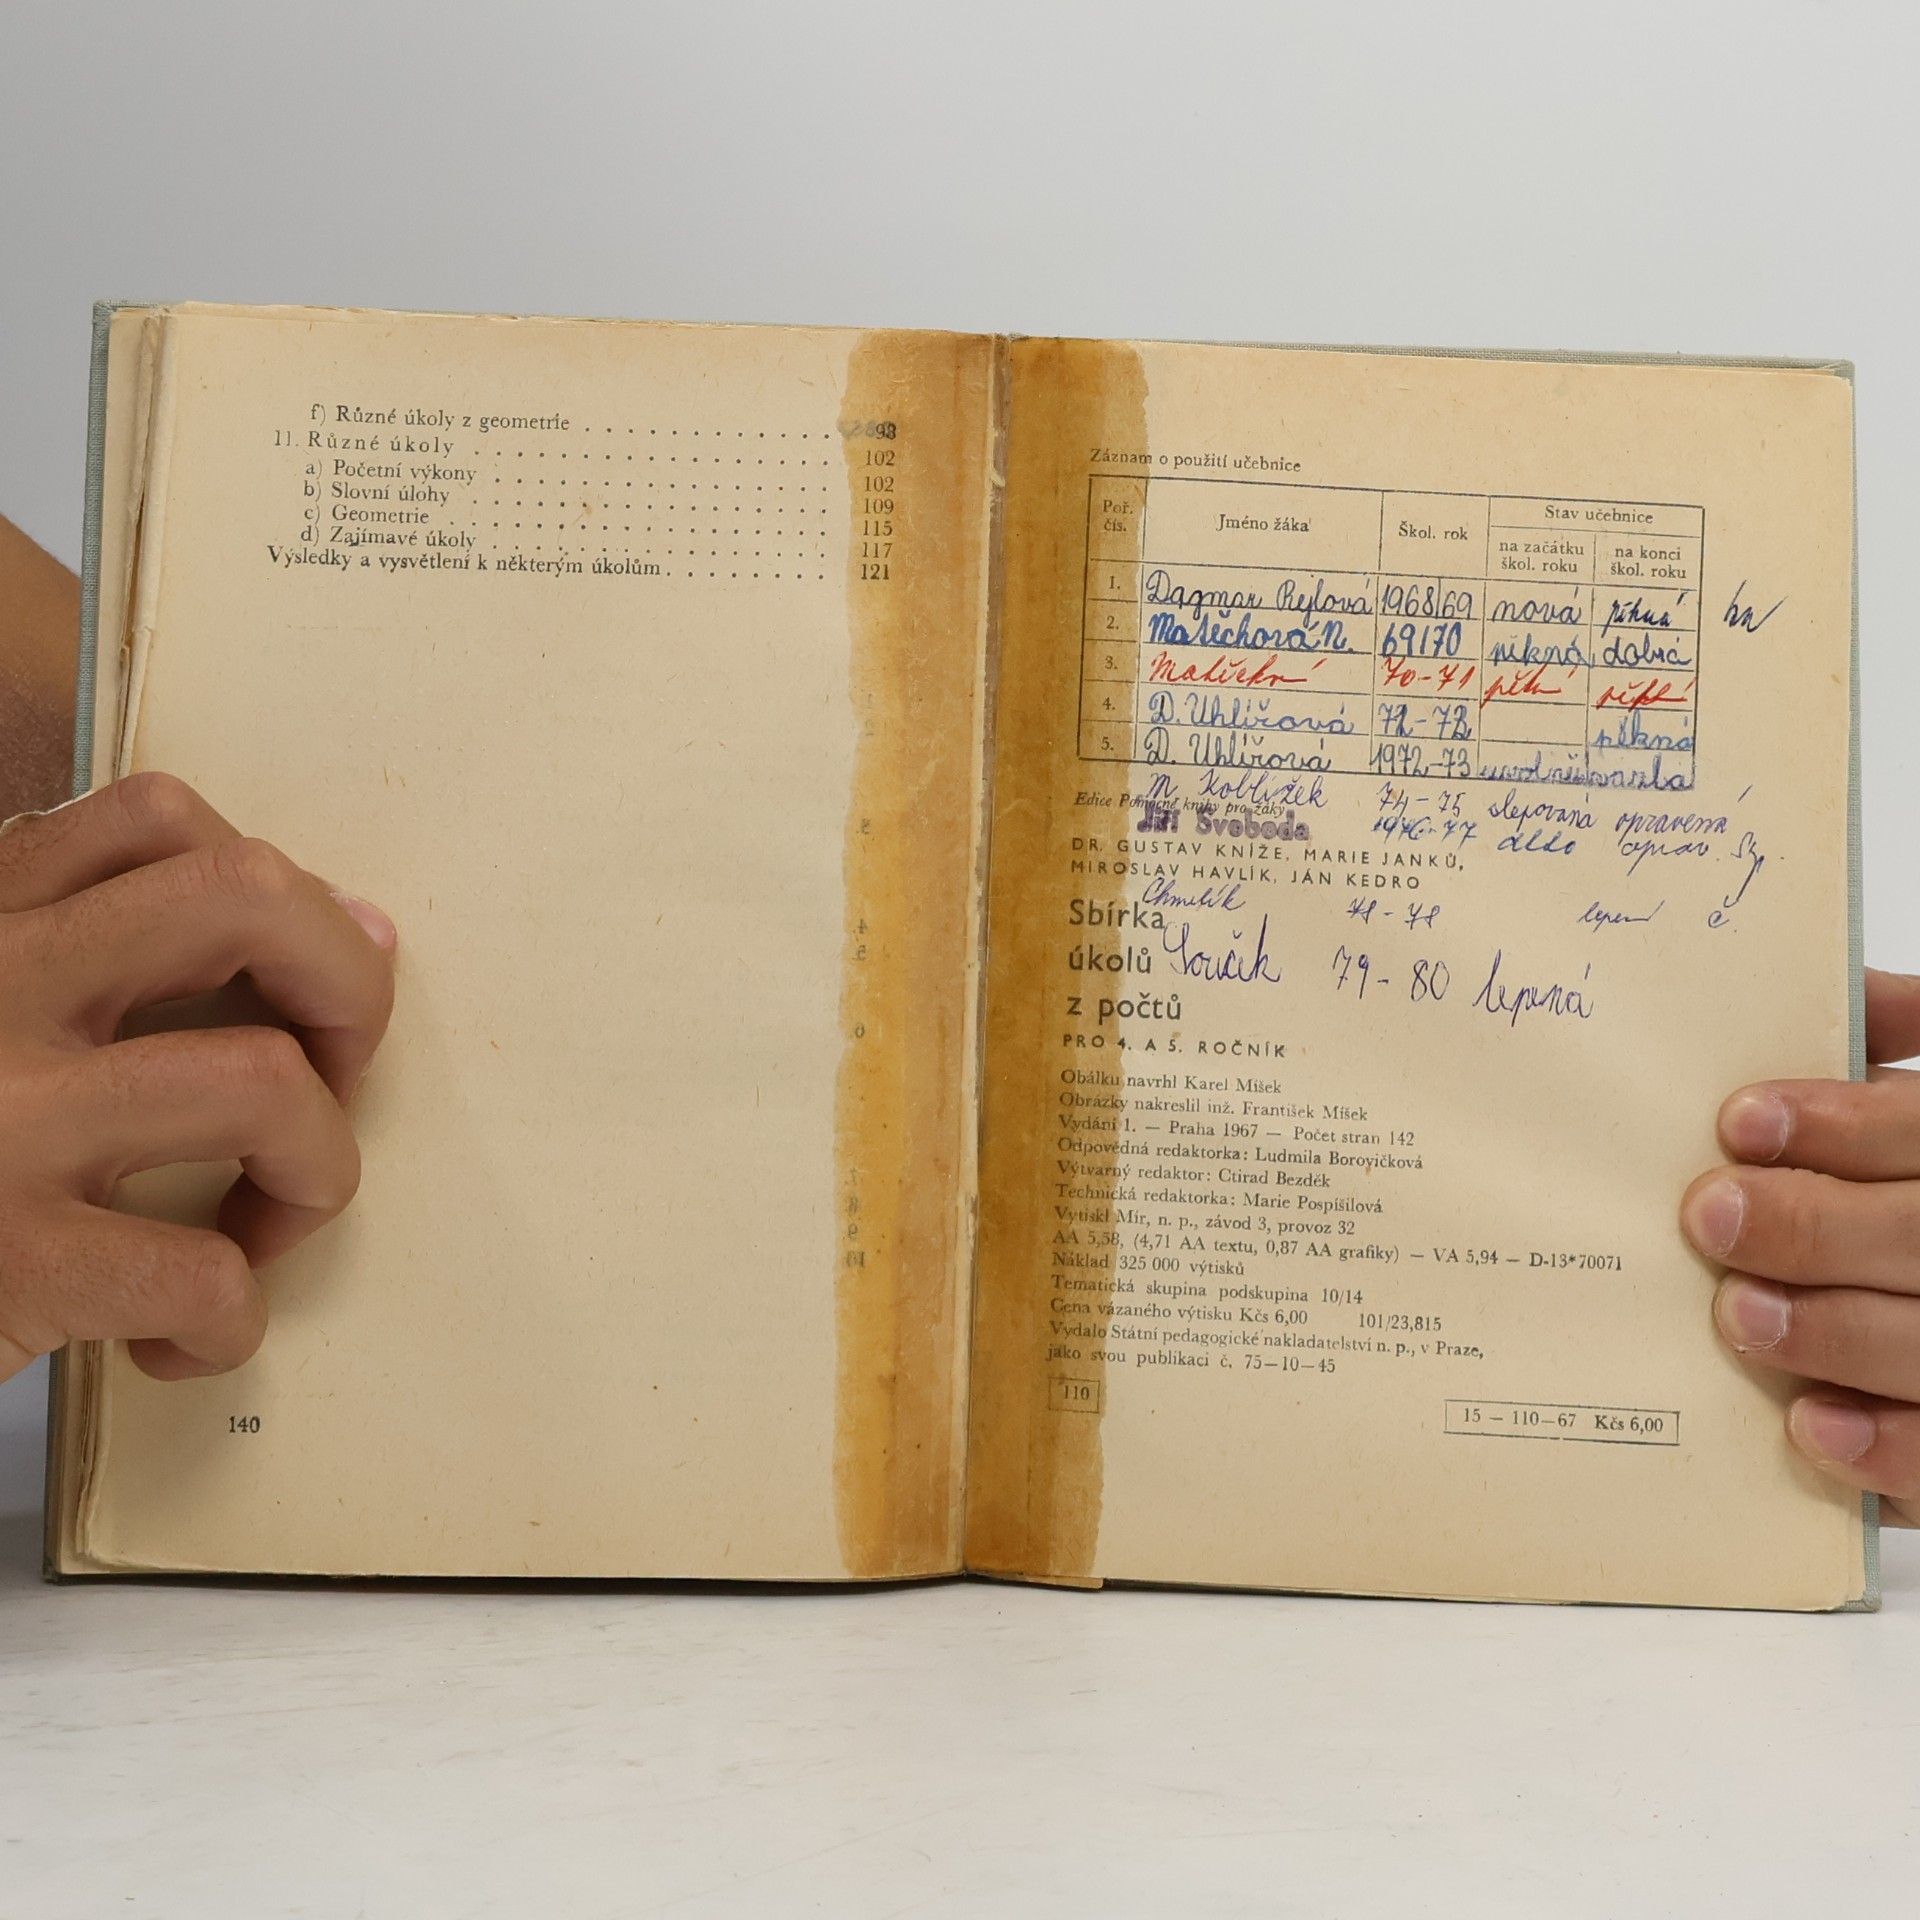 f) Různé úkoly z geometrie . . . . . . . . . . . . 98
11. Různé úkoly . . . . . . . . . . . . . 102
a) Početní výkony . . . . . . . . . . . . 102
b) Slovní úlohy . . . . . . . . . . . . . 109
c) Geometrie . . . . . . . . . . . . . . 115
d) Zajímavé úkoly . . . . . . . . . . . . 117
Výsledky a vysvětlení k některým úkolům . . . . . . . 121
140
Záznam o použití učebnice
Poř. čís. Jméno žáka Škol. rok Stav učebnice
na začátku škol. roku na konci škol. roku
1. Dagmar Rejlová 1968/69 nová pěkná
2. Matěchová N. 69/70 pěkná dobrá
3. 70-71
4. D. Uhlířová 72-73 pěkná
5. D. Uhlířová 1972-73
M. Koblížek 74-75 slepovaná opravena
Edice Pomocné knihy pro žáky
Jiří Svoboda 1976-77 oprav.
DR. GUSTAV KNÍŽE, MARIE JANKŮ,
MIROSLAV HAVLÍK, JÁN KEDRO
Chmelík 78-78
Sbírka
úkolů
Souček 79-80 lepená
z počtů
PRO 4. A 5. ROČNÍK
Obálku navrhl Karel Míšek
Obrázky nakreslil inž. František Míšek
Vydání 1. — Praha 1967 — Počet stran 142
Odpovědná redaktorka: Ludmila Borovičková
Výtvarný redaktor: Ctirad Bezděk
Technická redaktorka: Marie Pospíšilová
Vytiskl Mír, n. p., závod 3, provoz 32
AA 5,58, (4,71 AA textu, 0,87 AA grafiky) — VA 5,94 — D-13*70071
Náklad 325 000 výtisků
Tematická skupina podskupina 10/14
Cena vázaného výtisku Kčs 6,00 101/23,815
Vydalo Státní pedagogické nakladatelství n. p., v Praze,
jako svou publikaci č. 75—10—45
110
15 — 110—67 Kčs 6,00